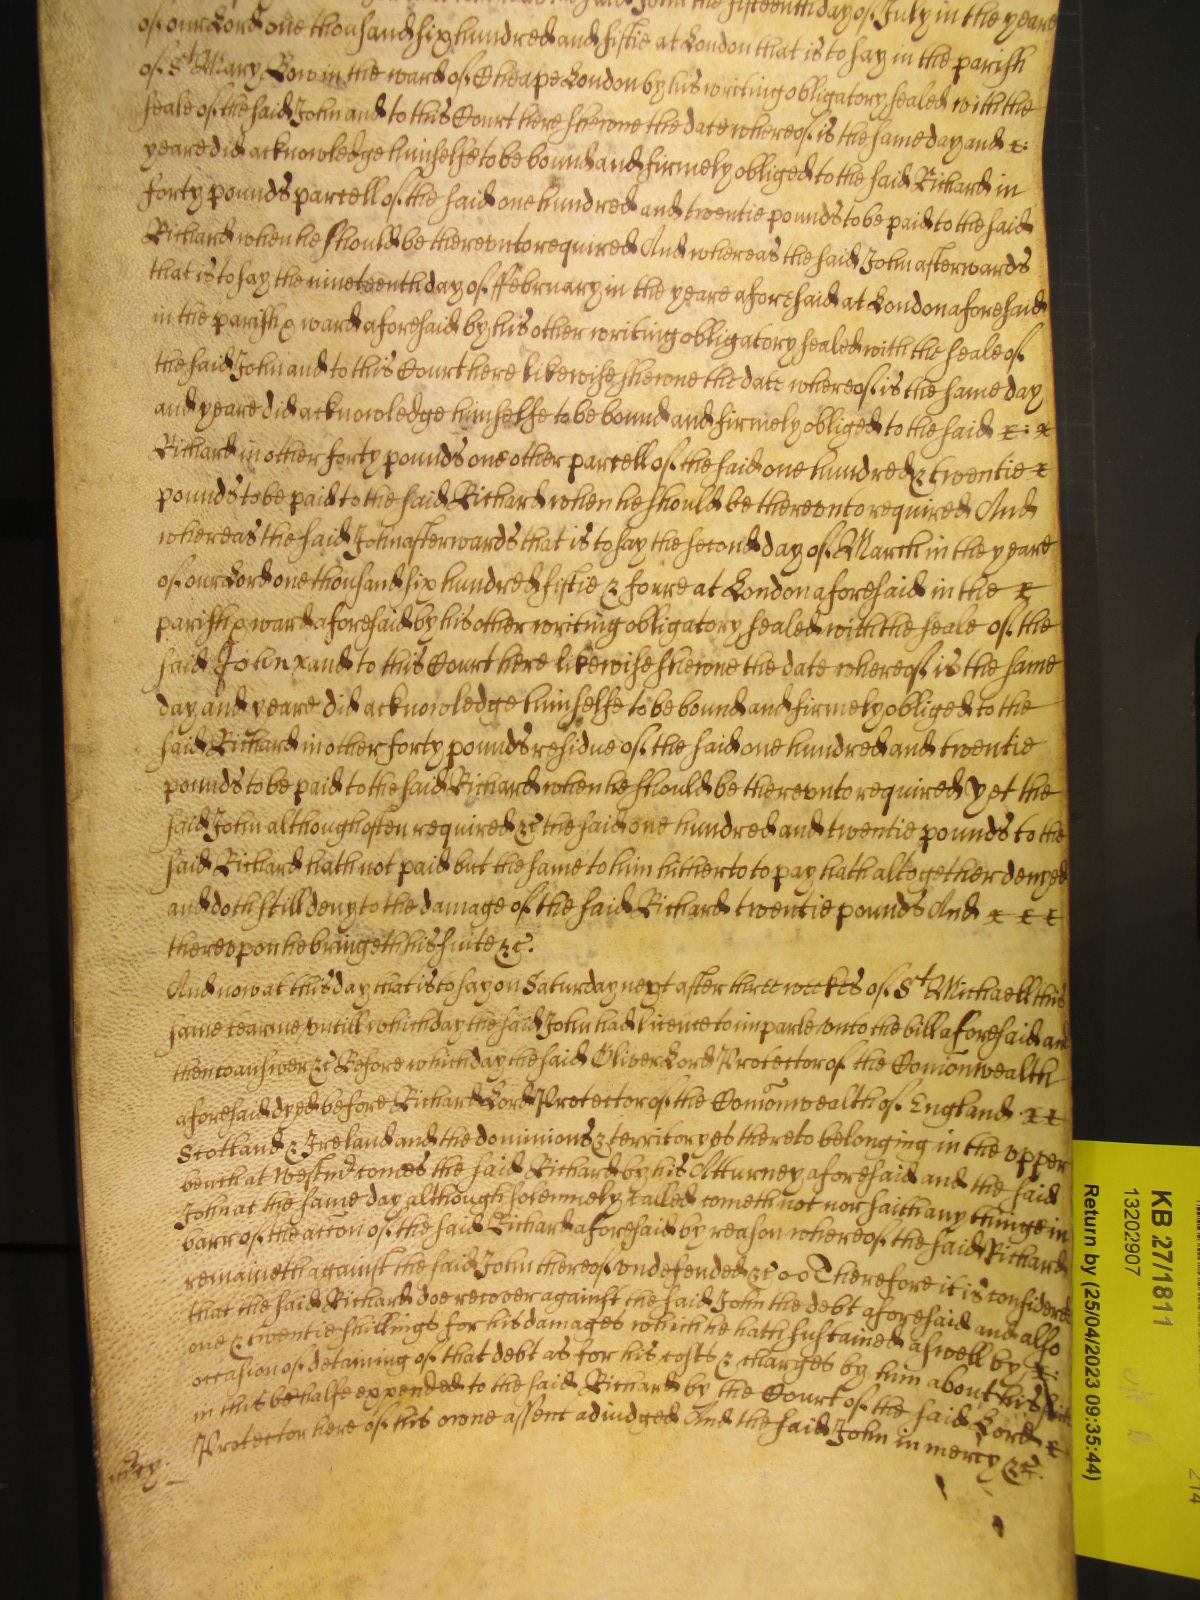 said John the fifteenth day of July in the yeare
of our Lord one thousand six hundred and fiftie at London that is to say in the parish
of St Mary Bow in the ward of Cheape London by his writing obligatory sealed with the
seale of the said John and to this Court here shewne the date whereof is the same day and
yeare did acknowledge himselfe to be bound and firmely obliged to the said Richard in
forty pounds parcell of the said one hundred and twentie pounds to be paid to the said
Richard when he should be therevnto required And whereas the said John afterwards
that is to say the nineteenth day of ffebruary in the yeare aforesaid at London aforesaid
in the parish & ward aforesaid by his other writing obligatory sealed with the seale of
the said John and to this Court here likewise shewne the date whereof is the same day
and yeare did acknowledge himselfe to be bound and firmely obliged to the said
Richard in other forty pounds one other parcell of the said one hundred & twentie
pounds to be paid to the said Richard when he should be therevnto required And
whereas the said John afterwards that is to say the second day of March in the yeare
of our Lord one thousand six hundred fiftie & foure at London aforesaid in the
parish & ward aforesaid by his other writing obligatory sealed with the seale of the
said John and to this Court here likewise shewne the date whereof is the same
day and yeare did acknowledge himselfe to be bound and firmely obliged to the
said Richard in other forty pounds residue of the said one hundred and twentie
pounds to be paid to the said Richard when he should be therevnto required yet the
said John although often required &c the said one hundred and twentie pounds to the
said Richard hath not paid but the same to him hitherto to pay hath altogether denyed
and doth still deny to the damage of the said Richard twentie pounds And
therevpon he bringeth his suite &c.
And now at this day that is to say on Saturday next after three weekes of St Michaell this
same tearme vntill which day the said John had licence to imparle vnto the bill aforesaid and
then to answer &c Before which day the said Oliver Lord Protector of the Comonwealth
aforesaid dyed before Richard Lord Protector of the Comonwealth of England
Scotland & Ireland and the dominions & territoryes thereto belonging in the vpper
bench at Westmr comes the said Richard by his Atturney aforesaid and the said
John at the same day although solemnely called cometh not nor saith any thinge in
barr of the action of the said Richard aforesaid by reason whereof the said Richard
remaineth against the said John thereof vndefended &c Therefore it is considered
that the said Richard doe recover against the said John the debt aforesaid and also
one & twentie shillings for his damages which he hath sustained aswell by
occasion of detaining of that debt as for his costs & charges by him about his suit
in this behalfe expended to the said Richard by the Court of the said Lord
Protector here of his owne assent adiudged And the said John in mercy &c.
mercy
KB 27/1811
13202907
Return by (25/04/2023 09:35:44)
214